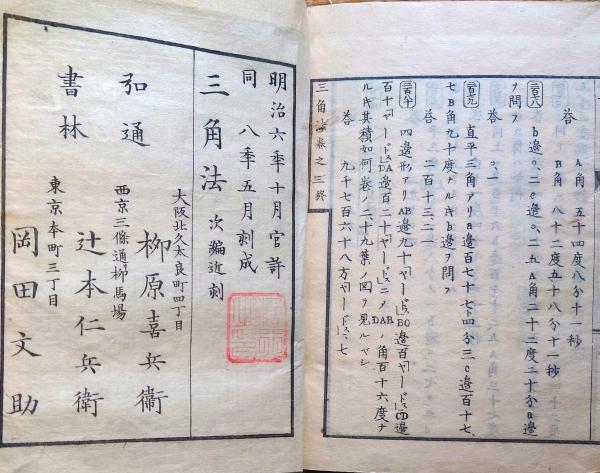 答 A角 五十四度八分十一秒
B角 八十二度五十八分十一秒
b邊〇、二c邊〇、二五A角二十二度二十分a邊
ヲ問フ
答 〇、一
直平三角アリa邊百七十七ト四分三c邊百十七、
七B角九十度ナルキb邊ヲ問フ
答 二百十三、二一
四邊形アリAB邊九十「ヤードス」BC邊百「ヤードス」CD邊
百十「ヤードス」DA邊百二十「ヤードス」ノDABノ角百十六度ナ
ルキ其積如何卷ノ二十九葉ノ圖ヲ見ルベシ
答 九千七百六十八方「ヤードス」、七
三角法卷之三終
明治六年十月官許
同 八年五月刻成
三角法 次編近刻
弘通
書林
大阪北久太良町四丁目
柳原喜兵衞
西京三條通柳馬場
辻本仁兵衛
東京本町三丁目
岡田文助